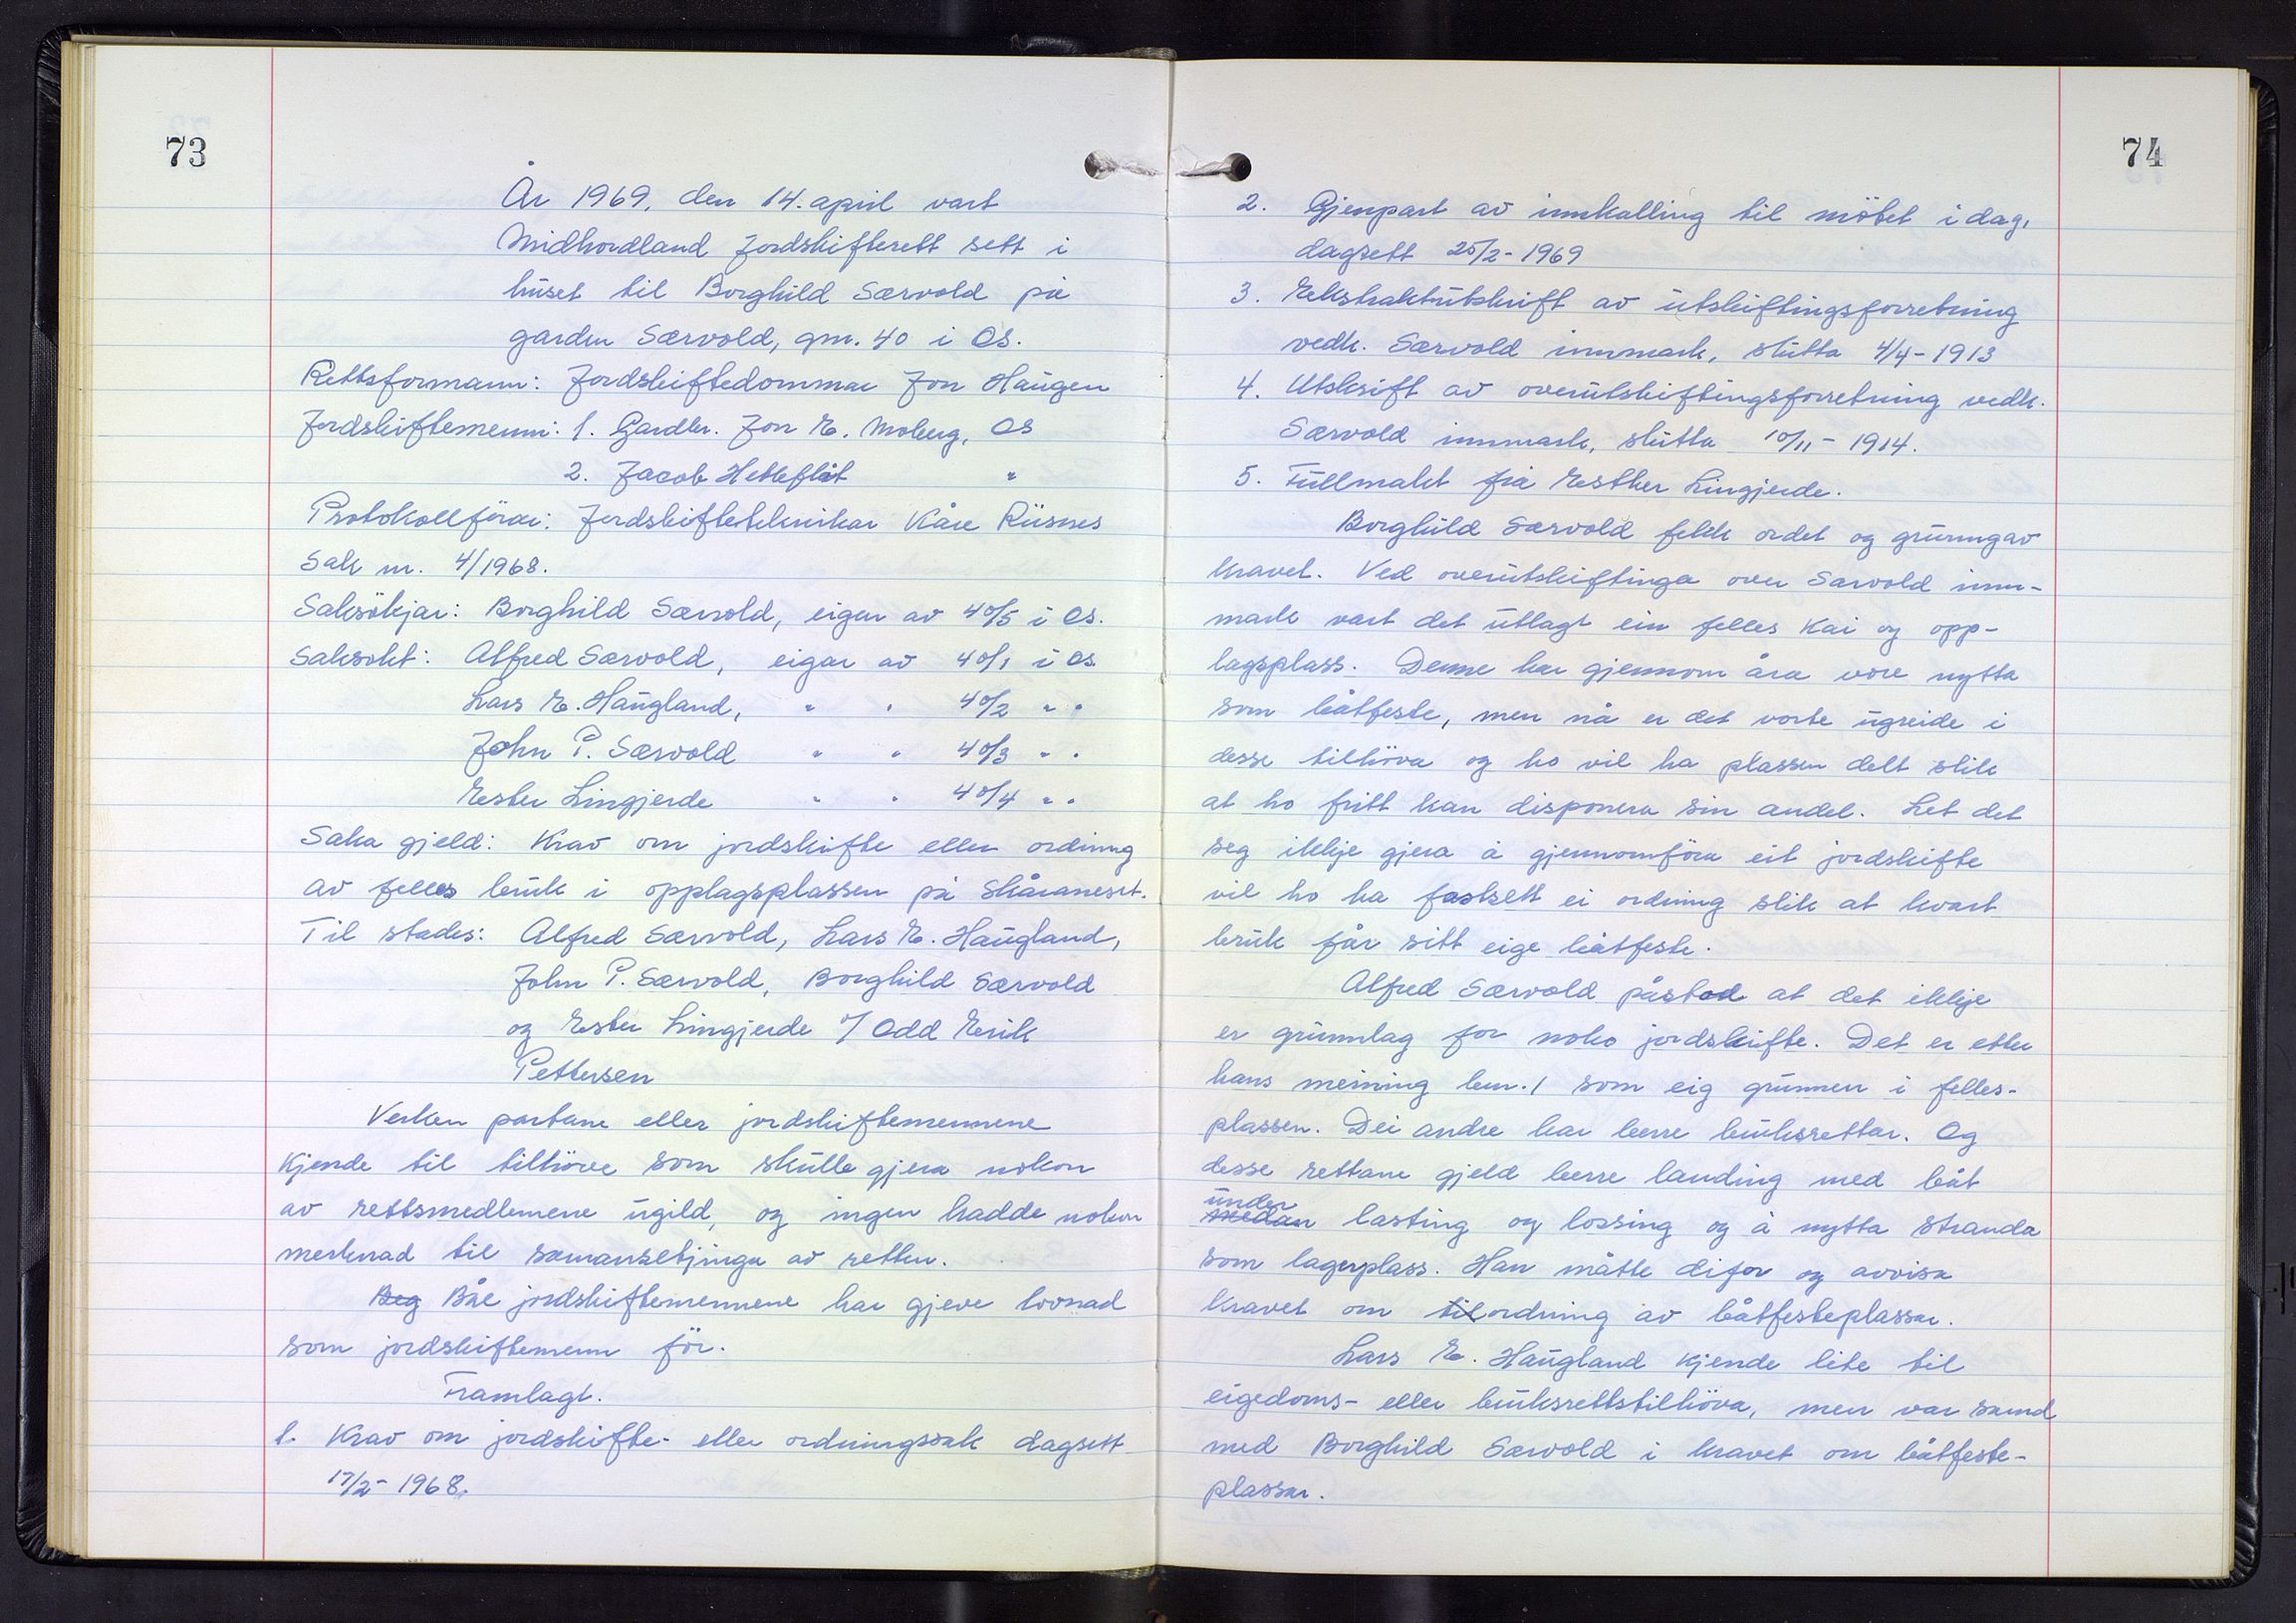 73
År 1969, den 14. april vart
Midhordland Jordskifterett sett i
huset til Borghild Særvold på
garden Særvold, gnr. 40 i Os.
Rettsformann: Jordskiftedommar Jon Haugen
Jordskiftemenn: 1. Gardbr. Jon E. Moberg, Os
2. Jacob Hetleflåt "
Protokollförar: Jordskifteteknikar Kåre Risnes
Sak nr. 4/1968.
Saksökjar: Borghild Særvold, eigar av 40/5 i Os.
Saksökt: Alfred Særvold, eigar av 40/1 i Os
Lars E. Haugland, " " 40/2 " "
John P. Særvold " " 40/3 " "
Ester Lingjerde " " 40/4 " "
Saka gjeld: Krav om jordskifte eller ordning
av felles bruk i opplagsplassen på Skåraneset.
Til stades: Alfred Særvold, Lars E. Haugland,
John P. Særvold, Borghild Særvold
og Ester Lingjerde v/ Odd Erik
Pettersen
Verken partane eller jordskiftemennene
kjende til tilhöve som skulle gjera nokon
av rettsmedlemene ugild, og ingen hadde nokon
merknad til samansetjinga av retten.
Beg Båe jordskiftemennene har gjeve lovnad
som jordskiftemenn för.
Framlagt.
1. Krav om jordskifte- eller ordningssak dagsett
17/2- 1968.
74
2. Gjenpart av innkalling til mötet i dag,
dagsett 25/2- 1969
3. Ekstraktutskrift av utskiftingsforretning
vedk. Særvold innmark, slutta 4/4- 1913
4. Utskrift av overutskiftingsforretning vedk.
Særvold innmark, slutta 10/11- 1914.
5. Fullmakt frå Esther Lingjerde.
Borghild Særvold fekk ordet og grunngav
kravet. Ved overutskiftinga over Særvold inn-
mark vart det utlagt ein felles kai og opp-
lagsplass. Denne har gjennom åra vore nytta
som båtfeste, men nå er det vorte ugreide i
desse tilhöva og ho vil ha plassen delt slik
at ho fritt kan disponera sin andel. Let det
seg ikkje gjera å gjennomföra eit jordskifte
vil ho ha fastsett ei ordning slik at kvart
bruk får sitt eige båtfeste.
Alfred Særvold påstod at det ikkje
er grunnlag for noko jordskifte. Det er etter
hans meining bnr. 1 som eig grunnen i felles-
plassen. Dei andre har berre bruksrettar. Og
desse rettane gjeld berre landing med båt
under
medan lasting og lossing og å nytta stranda
som lagerplass. Han måtte difor og avvisa
kravet om til ordning av båtfesteplassar.
Lars E. Haugland kjende lite til
eigedoms- eller bruksrettstilhöva, men var samd
med Borghild Særvold i kravet om båtfeste-
plassar.